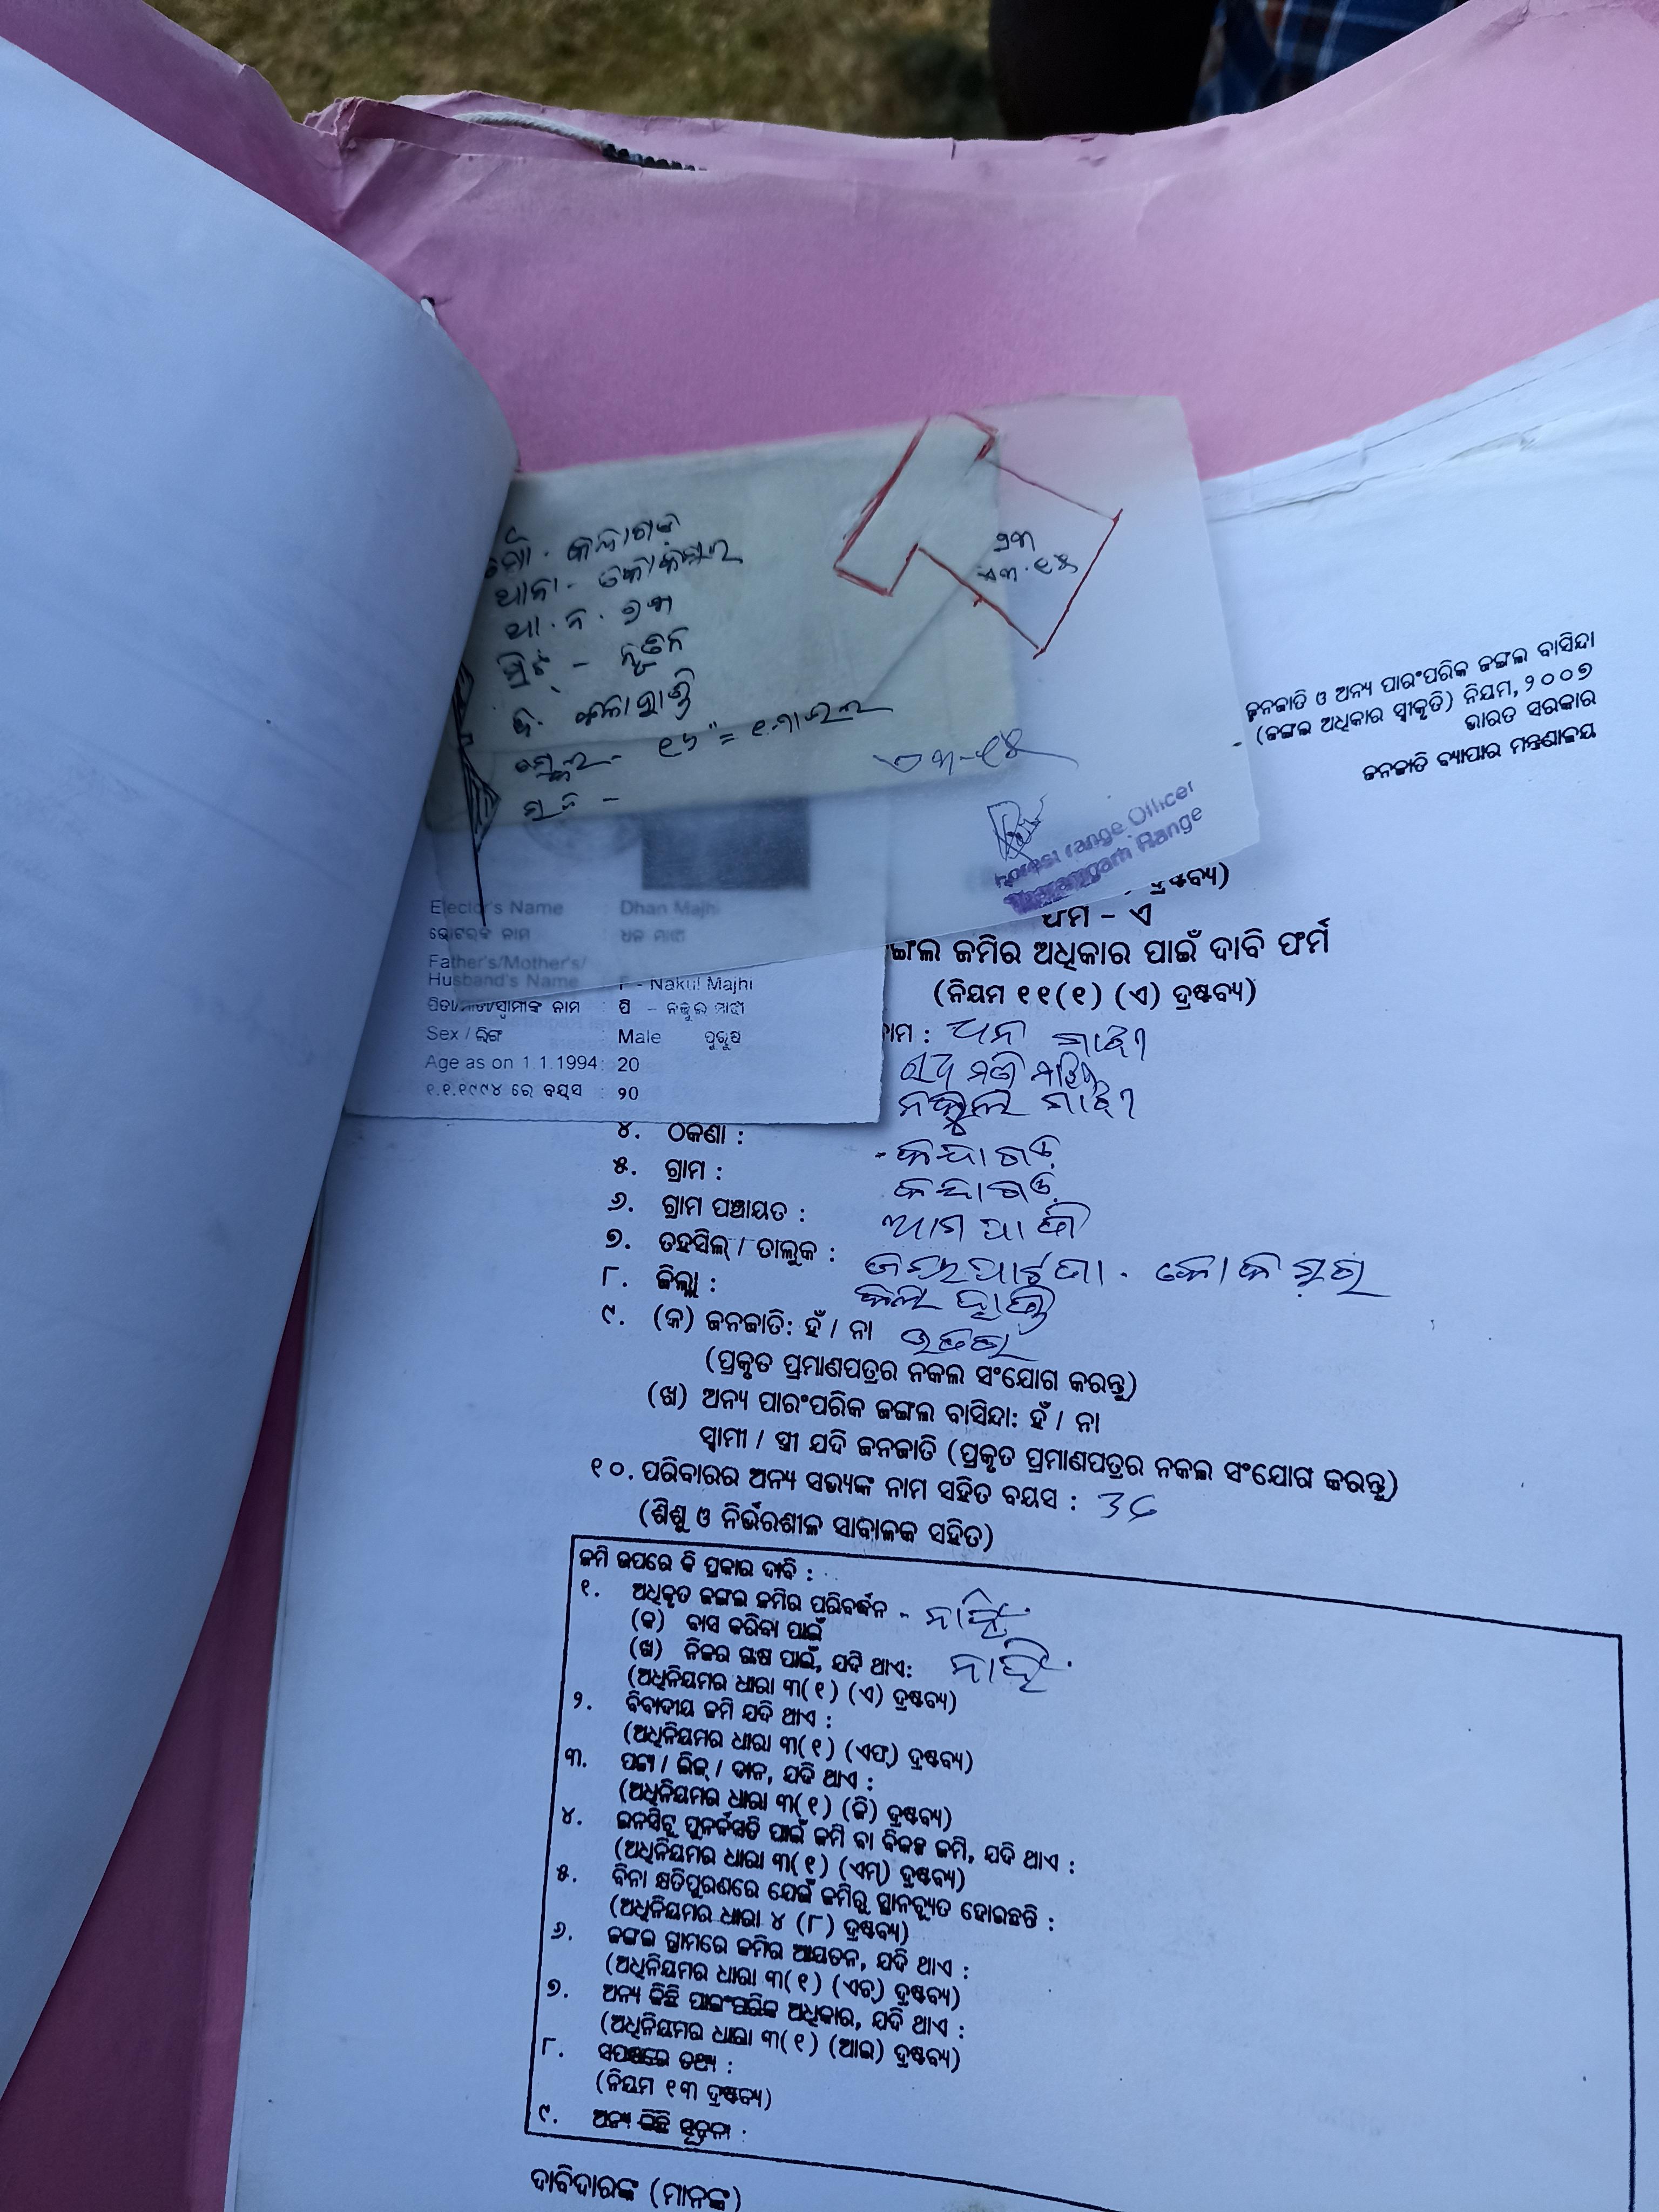 ମୌ. କନ୍ଦାଗଡ଼
ଥାନା - କୋକସରା
ଥା. ନ. ୨୩
ସିଟ୍ - ନୂତନ
ଜି. କଳାହାଣ୍ଡି
ସ୍କେଲ - ୧୬" = ୧ ମାଇଲ
ଜନଜାତି ଓ ଅନ୍ୟ ପାରଂପରିକ ଜଙ୍ଗଲ ବାସିନ୍ଦା
(ଜଙ୍ଗଲ ଅଧିକାର ସ୍ୱୀକୃତି) ନିୟମ, ୨୦୦୭
ଭାରତ ସରକାର
ଜନଜାତି ବ୍ୟାପାର ମନ୍ତ୍ରଣାଳୟ
Forest range Officer
Range
Elector's Name : Dhan Majhi
ଭୋଟରଙ୍କ ନାମ : ଧନ ମାଝୀ
Father's/Mother's/
Husband's Name : F - Nakul Majhi
ପିତା/ମାତା/ସ୍ୱାମୀଙ୍କ ନାମ : ପି - ନକୁଲ ମାଝୀ
Sex / ଲିଙ୍ଗ : Male ପୁରୁଷ
Age as on 1.1.1994 : 20
୧.୧.୧୯୯୪ ରେ ବୟସ : ୨୦
ଦ୍ରଷ୍ଟବ୍ୟ)
ଫର୍ମ - ଏ
ଙ୍ଗଲ ଜମିର ଅଧିକାର ପାଇଁ ଦାବି ଫର୍ମ
(ନିୟମ ୧୧(୧) (ଏ) ଦ୍ରଷ୍ଟବ୍ୟ)
ନାମ : ଧନ ମାଝୀ
ମାଝୀ
ନକୁଲ ମାଝୀ
୪. ଠିକଣା : - କନ୍ଦାଗଡ଼
୫. ଗ୍ରାମ : କନ୍ଦାଗଡ଼
୬. ଗ୍ରାମ ପଞ୍ଚାୟତ : ଆମପାନୀ
୭. ତହସିଲ୍ / ତାଲୁକ : ଜୟପାଟଣା. କୋକସରା
୮. ଜିଲ୍ଲା : କଳାହାଣ୍ଡି
୯. (କ) ଜନଜାତି: ହଁ / ନା
(ପ୍ରକୃତ ପ୍ରମାଣପତ୍ରର ନକଲ ସଂଯୋଗ କରନ୍ତୁ)
(ଖ) ଅନ୍ୟ ପାରଂପରିକ ଜଙ୍ଗଲ ବାସିନ୍ଦା: ହଁ / ନା
ସ୍ୱାମୀ / ସ୍ତ୍ରୀ ଯଦି ଜନଜାତି (ପ୍ରକୃତ ପ୍ରମାଣପତ୍ରର ନକଲ ସଂଯୋଗ କରନ୍ତୁ)
୧୦. ପରିବାରର ଅନ୍ୟ ସଭ୍ୟଙ୍କ ନାମ ସହିତ ବୟସ :
(ଶିଶୁ ଓ ନିର୍ଭରଶୀଳ ସାବାଳକ ସହିତ)
ଜମି ଉପରେ କି ପ୍ରକାର ଦାବି :
୧. ଅଧିକୃତ ଜଙ୍ଗଲ ଜମିର ପରିବର୍ଦ୍ଧନ - ନାହିଁ
(କ) ବାସ କରିବା ପାଇଁ
(ଖ) ନିଜର ଚାଷ ପାଇଁ, ଯଦି ଥାଏ: ନାହିଁ
(ଅଧିନିୟମର ଧାରା ୩(୧) (ଏ) ଦ୍ରଷ୍ଟବ୍ୟ)
୨. ବିବାଦୀୟ ଜମି ଯଦି ଥାଏ :
(ଅଧିନିୟମର ଧାରା ୩(୧) (ଏଫ୍) ଦ୍ରଷ୍ଟବ୍ୟ)
୩. ପଟ୍ଟା / ଲିଜ୍ / ଦାନ, ଯଦି ଥାଏ :
(ଅଧିନିୟମର ଧାରା ୩(୧) (ଜି) ଦ୍ରଷ୍ଟବ୍ୟ)
୪. ଇନସିଟୁ ପୁନର୍ବସତି ପାଇଁ ଜମି ବା ବିକଳ୍ପ ଜମି, ଯଦି ଥାଏ :
(ଅଧିନିୟମର ଧାରା ୩(୧) (ଏମ୍) ଦ୍ରଷ୍ଟବ୍ୟ)
୫. ବିନା କ୍ଷତିପୂରଣରେ ଯେଉଁ ଜମିରୁ ସ୍ଥାନଚ୍ୟୁତ ହୋଇଛନ୍ତି :
(ଅଧିନିୟମର ଧାରା ୪ (୮) ଦ୍ରଷ୍ଟବ୍ୟ)
୬. ଜଙ୍ଗଲ ଗ୍ରାମରେ ଜମିର ଆୟତନ, ଯଦି ଥାଏ :
(ଅଧିନିୟମର ଧାରା ୩(୧) (ଏଚ୍) ଦ୍ରଷ୍ଟବ୍ୟ)
୭. ଅନ୍ୟ କିଛି ପାରଂପରିକ ଅଧିକାର, ଯଦି ଥାଏ :
(ଅଧିନିୟମର ଧାରା ୩(୧) (ଆଇ) ଦ୍ରଷ୍ଟବ୍ୟ)
୮. ସପକ୍ଷରେ ତଥ୍ୟ :
(ନିୟମ ୧୩ ଦ୍ରଷ୍ଟବ୍ୟ)
୯. ଅନ୍ୟ କିଛି ସୂଚନା :
ଦାବିଦାରଙ୍କ (ମାନଙ୍କ)